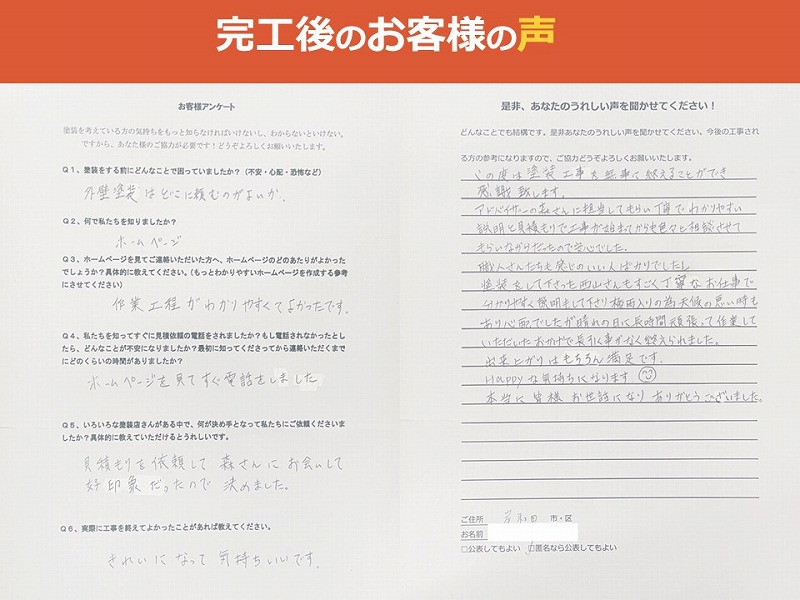 完工後のお客様の声
お客様アンケート
塗装を考えている方の気持ちをもっと知らなければいけないし、わからないといけない。
ですから、あなた様のご協力が必要です！どうぞよろしくお願いいたします。
Q1、塗装をする前にどんなことで困っていましたか？（不安・心配・恐怖など）
外壁塗装はどこに頼むのがよいか。
Q2、何で私たちを知りましたか？
ホームページ
Q3、ホームページを見てご連絡いただいた方へ、ホームページのどのあたりがよかった
でしょうか？具体的に教えてください。（もっとわかりやすいホームページを作成する参考
にさせてください）
作業工程がわかりやすくてよかったです。
Q4、私たちを知ってすぐに見積依頼の電話をされましたか？もし電話されなかったとし
たら、どんなことが不安になりましたか？最初に知ってくださってから連絡いただくまで
にどのくらいの時間がありましたか？
ホームページを見てすぐ電話をしました
Q5、いろいろな塗装店さんがある中で、何が決め手となって私たちにご依頼くださいま
したか？具体的に教えていただけるとうれしいです。
見積もりを依頼して 森さんにお会いして
好印象だったので 決めました。
Q6、実際に工事を終えてよかったことがあれば教えてください。
きれいになって 気持ちいいです。
是非、あなたのうれしい声を聞かせてください！
どんなことでも結構です。是非あなたのうれしい声を聞かせてください。今後の工事され
る方の参考になりますので、ご協力どうぞよろしくお願いいたします。
この度は塗装工事を無事に終えることができ
感謝致します。
アドバイザーの森さんに担当してもらい丁寧でわかりやすい
説明と見積もりで工事が始まってからも色々と相談させて
もらいながらだったので安心でした。
職人さんたちも感じのいい人ばかりでしたし
塗装をして下さった西山さんもすごく丁寧なお仕事で
分かりやすく説明もして下さり梅雨入りの為天候の悪い時も
あり心配でしたが晴れの日に長時間頑張って作業して
いただいたおかげで長引く事がなく終えられました。
出来上がりはもちろん満足です。
Happyな気持ちになります
本当に皆様お世話になりありがとうございました。
ご住所 岸和田 市・区
お名前
□公表してもよい ☑匿名なら公表してもよい